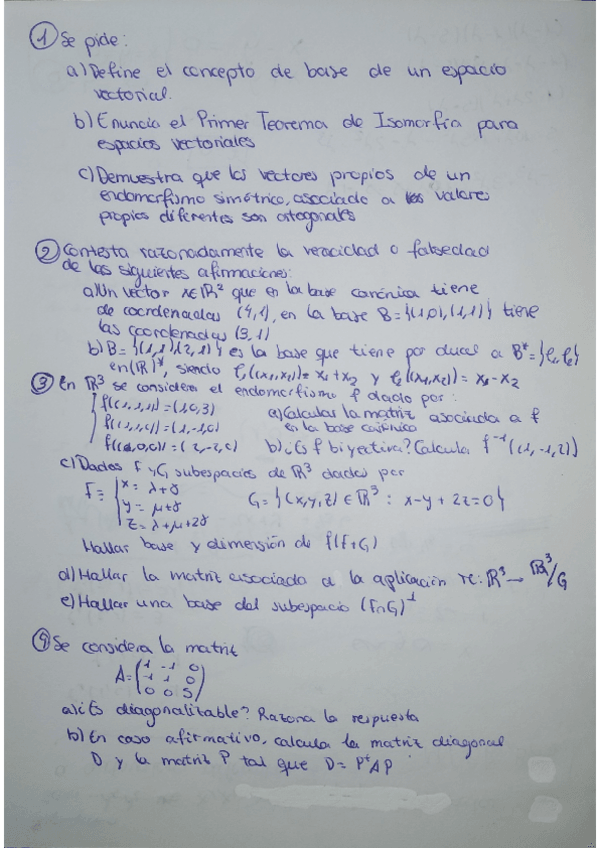 ① Se pide:
a) Define el concepto de base de un espacio
vectorial.
b) Enuncia el Primer Teorema de Isomorfía para
espacios vectoriales
c) Demuestra que los vectores propios de un
endomorfismo simétrico, asociado a los valores
propios diferentes son ortogonales
② Contesta razonadamente la veracidad o falsedad
de las siguientes afirmaciones:
a) Un vector x∈ℝ² que en la base canónica tiene
de coordenadas (4,1), en la base B={(1,0),(1,1)} tiene
las coordenadas (3,1)
b) B={(1,1)(2,1)} es la base que tiene por dual a B*={f₁,f₂}
en (ℝ²)*, siendo f₁((x₁,x₂))=x₁+x₂ y f₂((x₁,x₂))=x₁-x₂
③ En ℝ³ se considera el endomorfismo f dado por:
f(1,1,1)=(1,0,3)
f(1,1,0)=(1,-1,0)
f(1,0,0)=(2,-2,0)
a) Calcular la matriz asociada a f
en la base canónica
b) ¿Es f biyectiva? Calcula f⁻¹((1,-1,2))
c) Dados F y G subespacios de ℝ³ dados por
F≡ {x=λ+γ
y=μ+γ
z=λ+μ+2γ
G={(x,y,z)∈ℝ³: x-y+2z=0}
Hallar base y dimensión de f(F+G)
d) Hallar la matriz asociada a la aplicación π:ℝ³→ℝ³/G
e) Hallar una base del subespacio (F∩G)^⊥
④ Se considera la matriz
A=(1 -1 0
-1 1 0
0 0 5)
a) ¿Es diagonalizable? Razona la respuesta
b) En caso afirmativo, calcula la matriz diagonal
D y la matriz P tal que D=PᵗAP